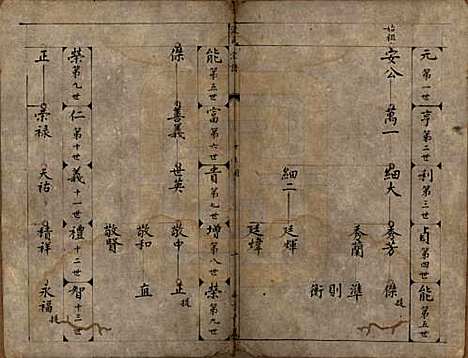 元 第一世 亨 第二世 利 第三世 貞 第四世 能 第五世
始祖 安公 萬一 細大 秀芳 傑
秀蘭 準
則
衡
細二 廷輝
廷煒
能 第五世 富 第六世 貴 第七世 增 第八世 榮 第九世
傑 善義 世英 敬中 正
敬和 直
敬賢
榮 第九世 仁 第十世 義 十一世 禮 十二世 智 十三世
正 榮祿 天祐 積祥 永福